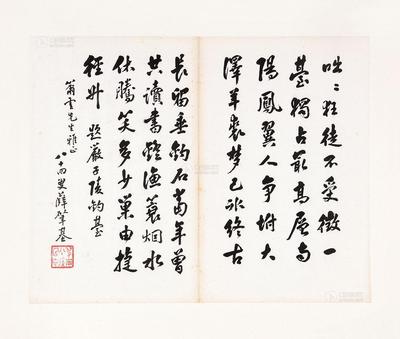 咄咄狂徒不受徵一
台獨占最高層南
陽鳳翼人爭附大
澤羊裘夢已冰終古
長留垂釣石當年曾
共讀書燈漁蓑烟水
休騰笑多少巢由捷
徑升 題嚴子陵釣臺
翁雲先生雅正
八十四叟薛肇基